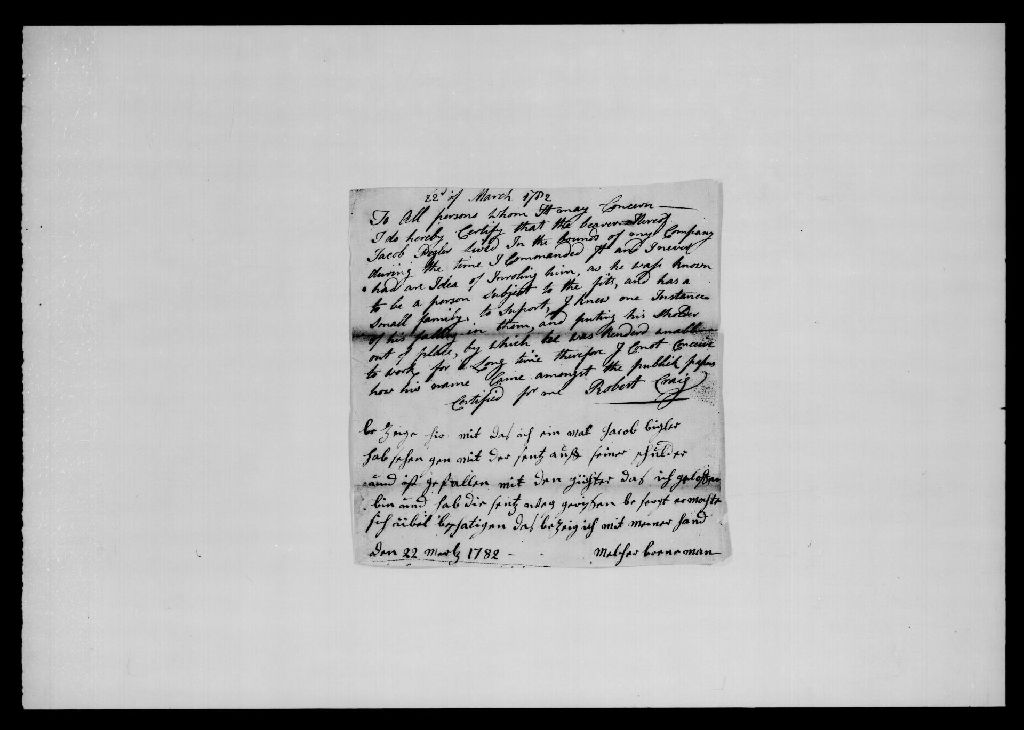 22d of March 1782
To All persons whom It may Concern
I do hereby Certify that the bearer
Jacob lived In the bounds of my Company
during the time I Commanded It and I never
had an Idea of Inroling him, as he wass known
to be a person Subject to the fits, and has a
Small family, to Suport, I knew one Instance
of his falling in them, and puting his Sholder
out of place, by which he was
to work for a Long time therefor I Conot Conceive
how his name Came amongst the publick papers
Certified for me Robert Craig
be Zeige hir mit das ich ein mal Jacob bigler
hab sehen gen mit der sentz auff seiner schulder
und ist gefallen mit den das ich geloffen
bin und hab die sentz weg be sorgt er mochte
sich übel das be Zeig ich mit meiner hand
den 22 Mertz 1782 Melcher borneman